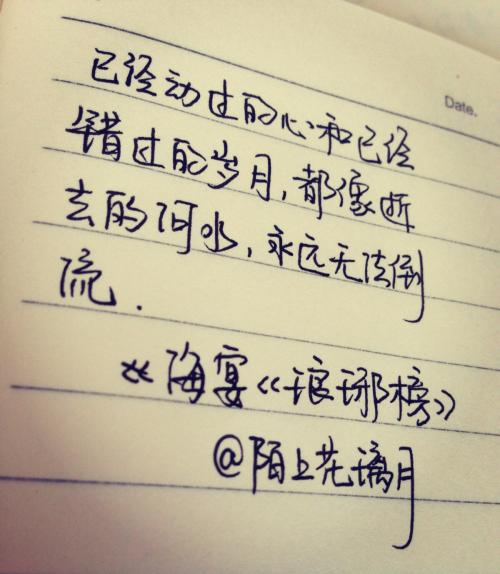 Date.
已经动过的心和已经
错过的岁月，都像逝
去的河水，永远无法倒
流.
《海宴《琅琊榜》
@陌上花璃月